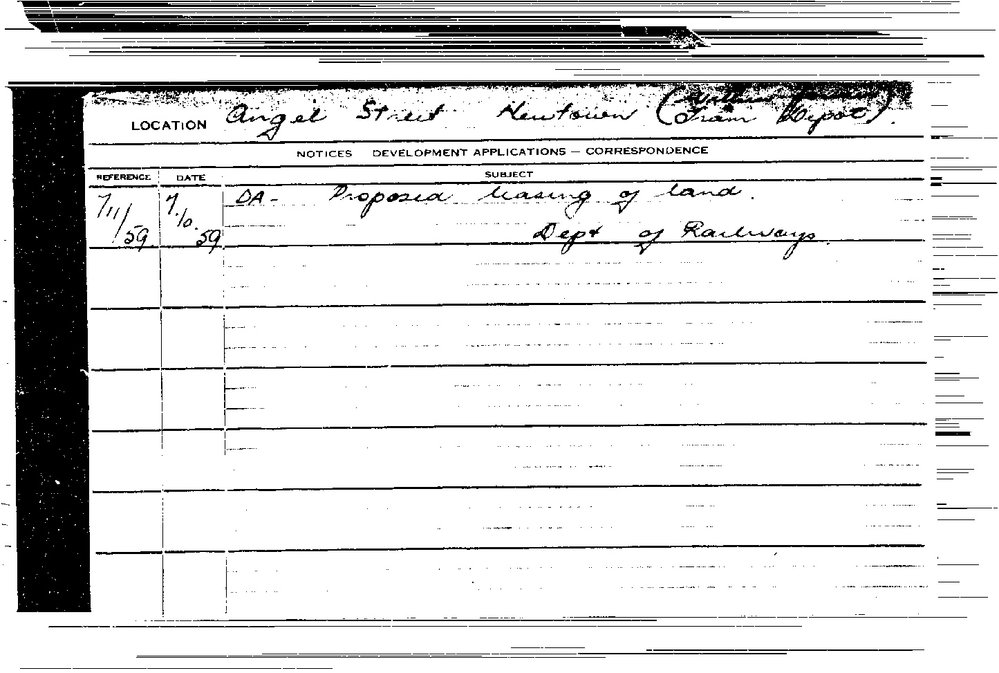 LOCATION Angel Street Newtown (Tram Depot).
NOTICES DEVELOPMENT APPLICATIONS — CORRESPONDENCE
REFERENCE DATE SUBJECT
7/11/59 7.10.59 DA - Proposed leasing of land.
Dept of Railways.